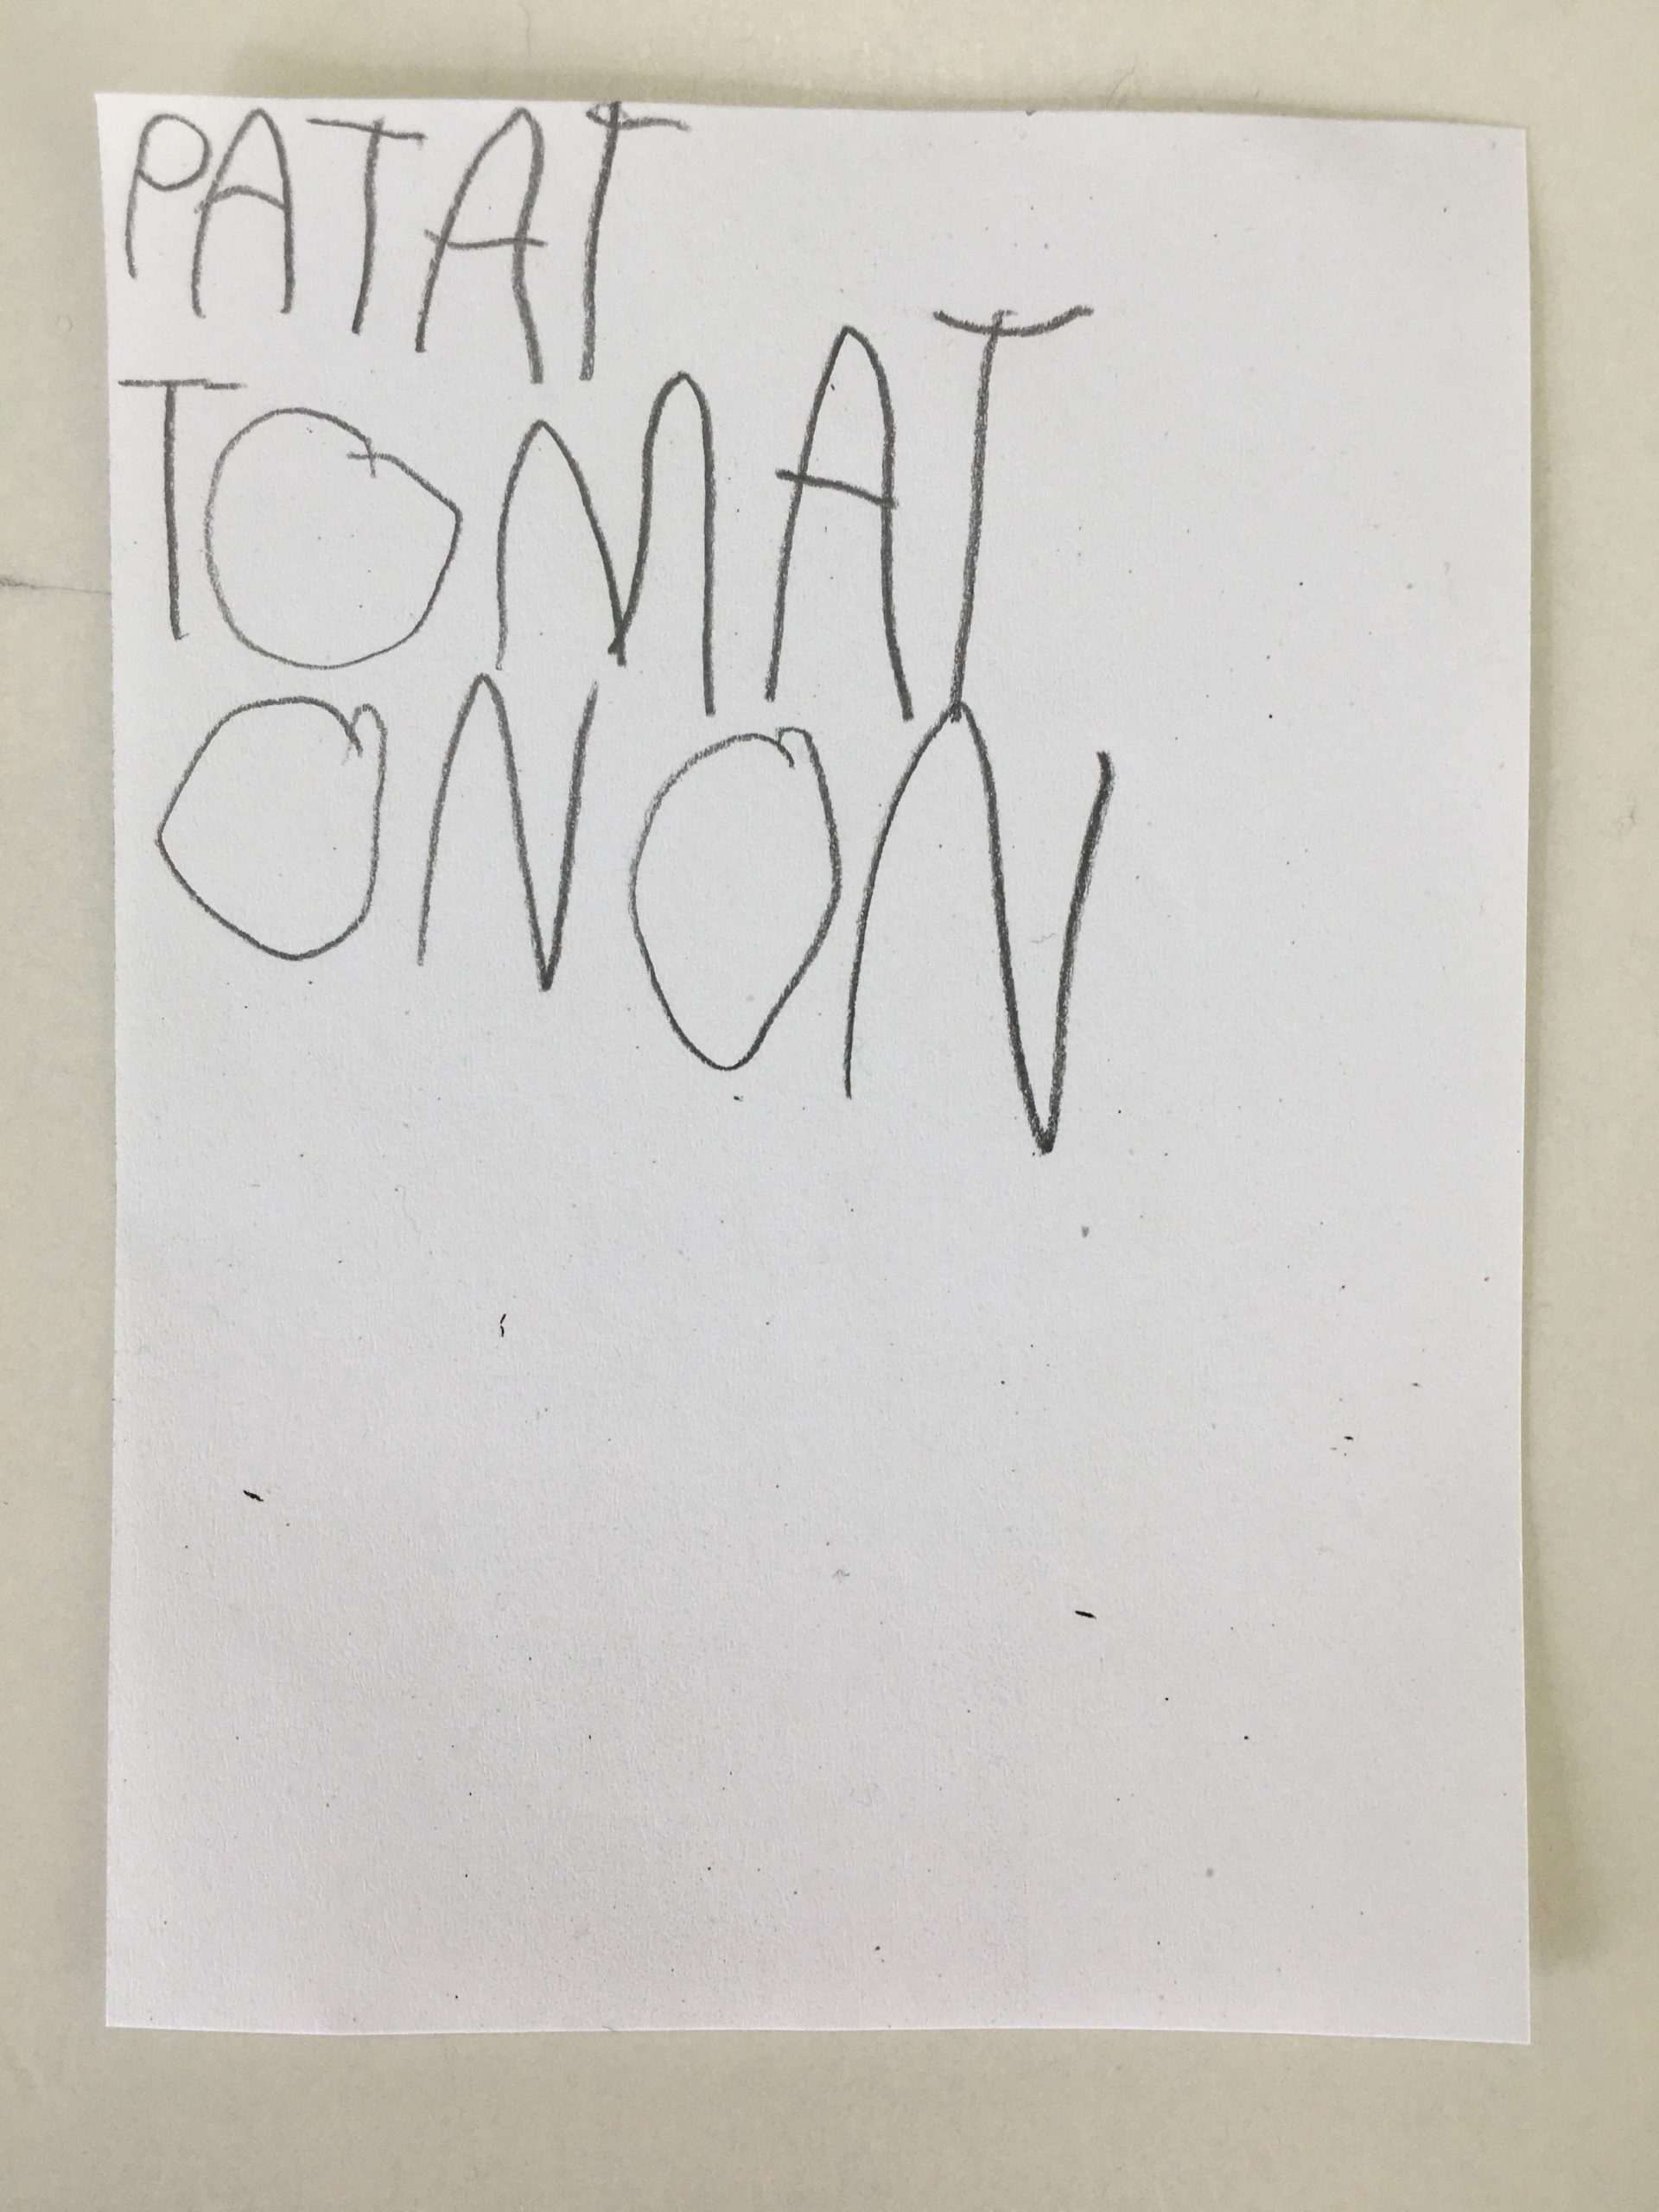 PATAT
TOMAT
ONON